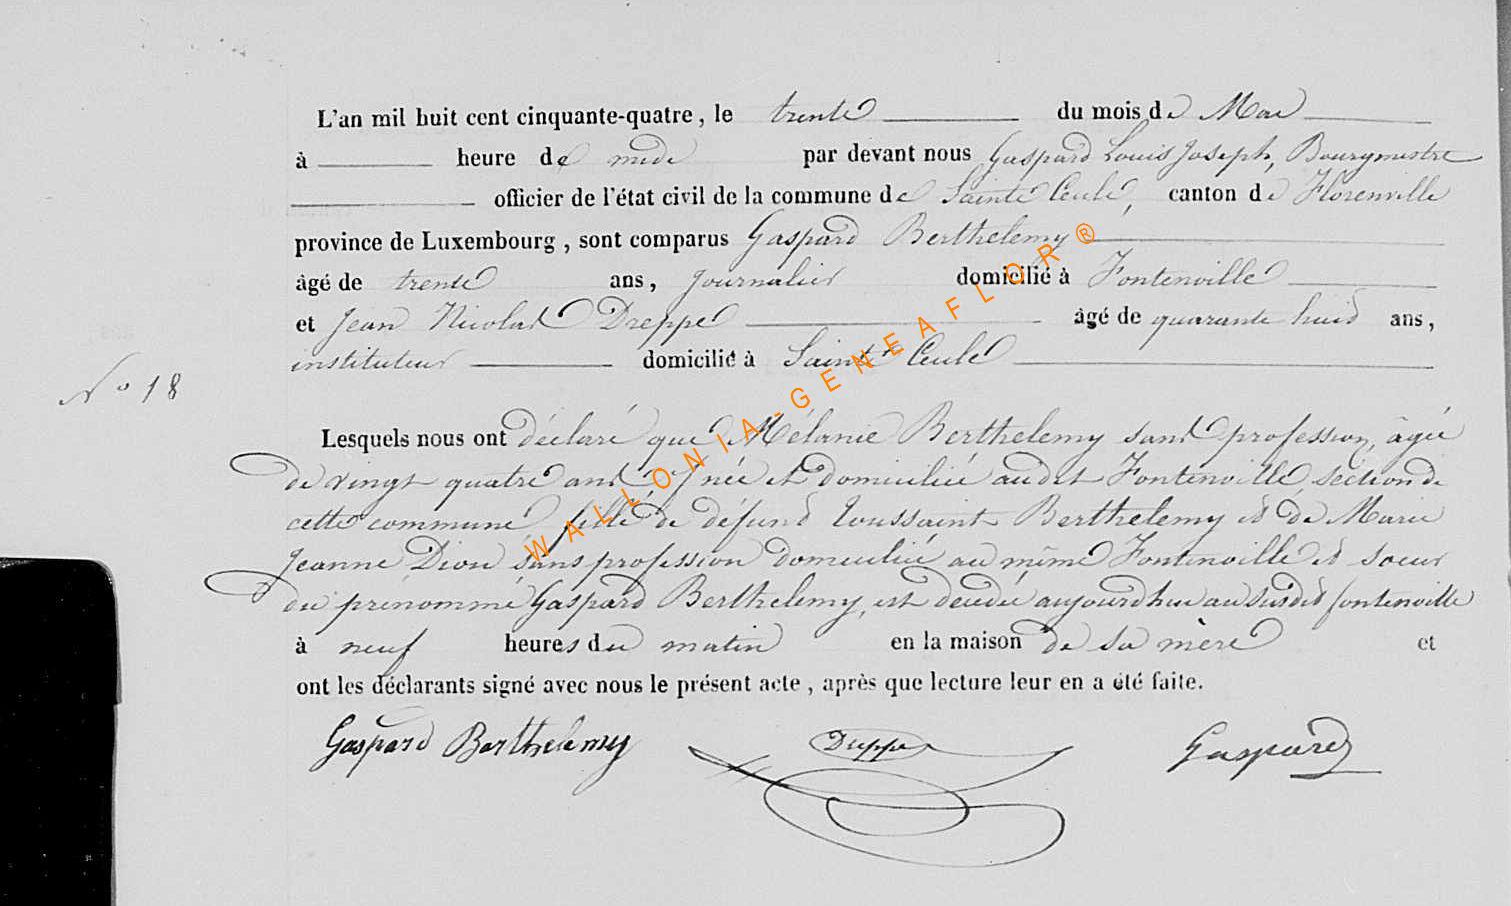 L'an mil huit cent cinquante-quatre, le trente du mois de Mai
à heure de midi par devant nous Gaspard Louis Joseph, Bourgmestre
officier de l'état civil de la commune de Sainte Cecile, canton de Florenville
province de Luxembourg, sont comparus Gaspard Berthelemy
âgé de trente ans, journalier domicilié à Fontenoille
et Jean Nicolas Dreppe âgé de quarante huit ans,
instituteur domicilié à Sainte Cecile
N° 18
Lesquels nous ont déclaré que Mélanie Berthelemy sans profession, âgée
de vingt quatre ans, née et domiciliée audit Fontenoille, section de
cette commune, fille de défunt Toussaint Berthelemy et de Marie
Jeanne Dion sans profession domiciliée au même Fontenoille et soeur
du prénommé Gaspard Berthelemy, est décédée aujourd'hui au susdit fontenoille
à neuf heures du matin en la maison de sa mère et
ont les déclarants signé avec nous le présent acte, après que lecture leur en a été faite.
Gaspard Berthelemy Dreppe Gaspard
WALLONIA-GENEAFLOR®